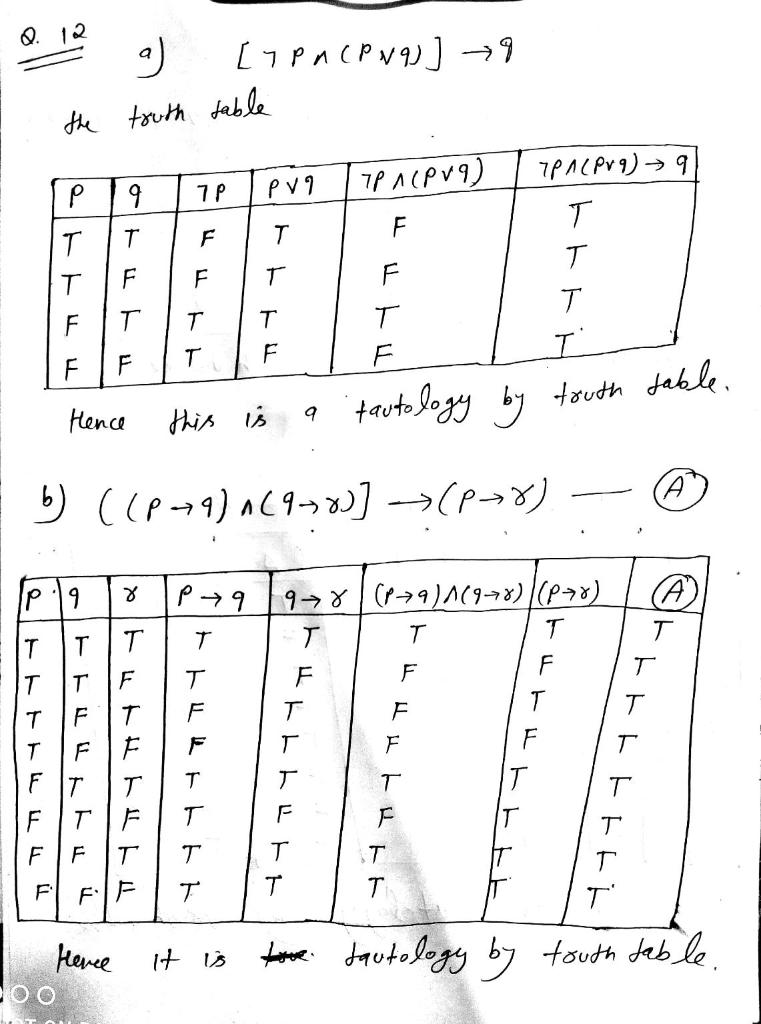 Q. 12
a) [¬P∧(P∨q)] →q
the truth table
P q ¬P P∨q ¬P∧(P∨q) ¬P∧(P∨q) → q
T T F T F T
T F F T F T
F T T T T T
F F T F F T
Hence this is a tautology by truth table.
b) ((P→q)∧(q→r)] →(P→r) — Ⓐ
P q r P→q q→r (P→q)∧(q→r) (P→r) Ⓐ
T T T T T T T T
T T F T F F F T
T F T F T F T T
T F F F T F F T
F T T T T T T T
F T F T F F T T
F F T T T T T T
F F F T T T T T
Hence it is tautology by truth table.